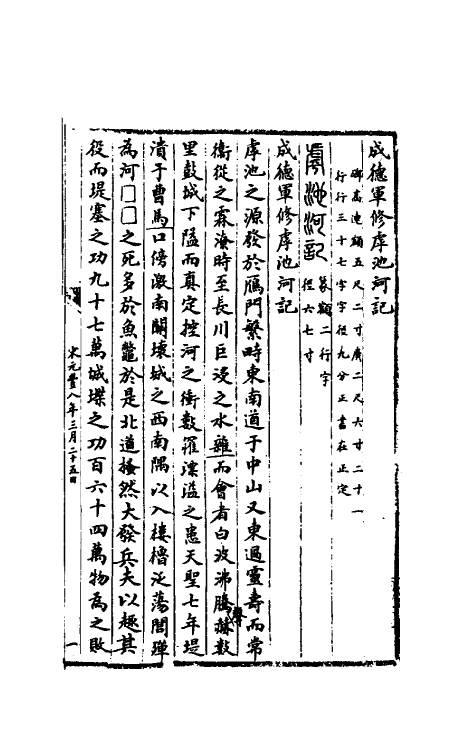 成德軍修虖池河記
碑高連額五尺二寸廣二尺六寸二十一
行行三十七字字徑九分正書在正定
虖池河記
篆額二行字
徑六七寸
成德軍修虖池河記
虖池之源發於鴈門繁畤東南道于中山又東過靈壽而常
衡從之霖潦時至長川巨浸之水雜而會者白波沸騰據數
里鼓城下隘而真定控河之衝數罹漂溢之患天聖七年堤
潰于曹馬口傍激南關壞城之西南隅以入樓櫓泛蕩閭殫
為河□□之死多於魚鼈於是北道搔然大發兵夫以趣其
役而堤塞之功九十七萬城堞之功百六十四萬物為之敗
宋元豐八年三月二十五日
一